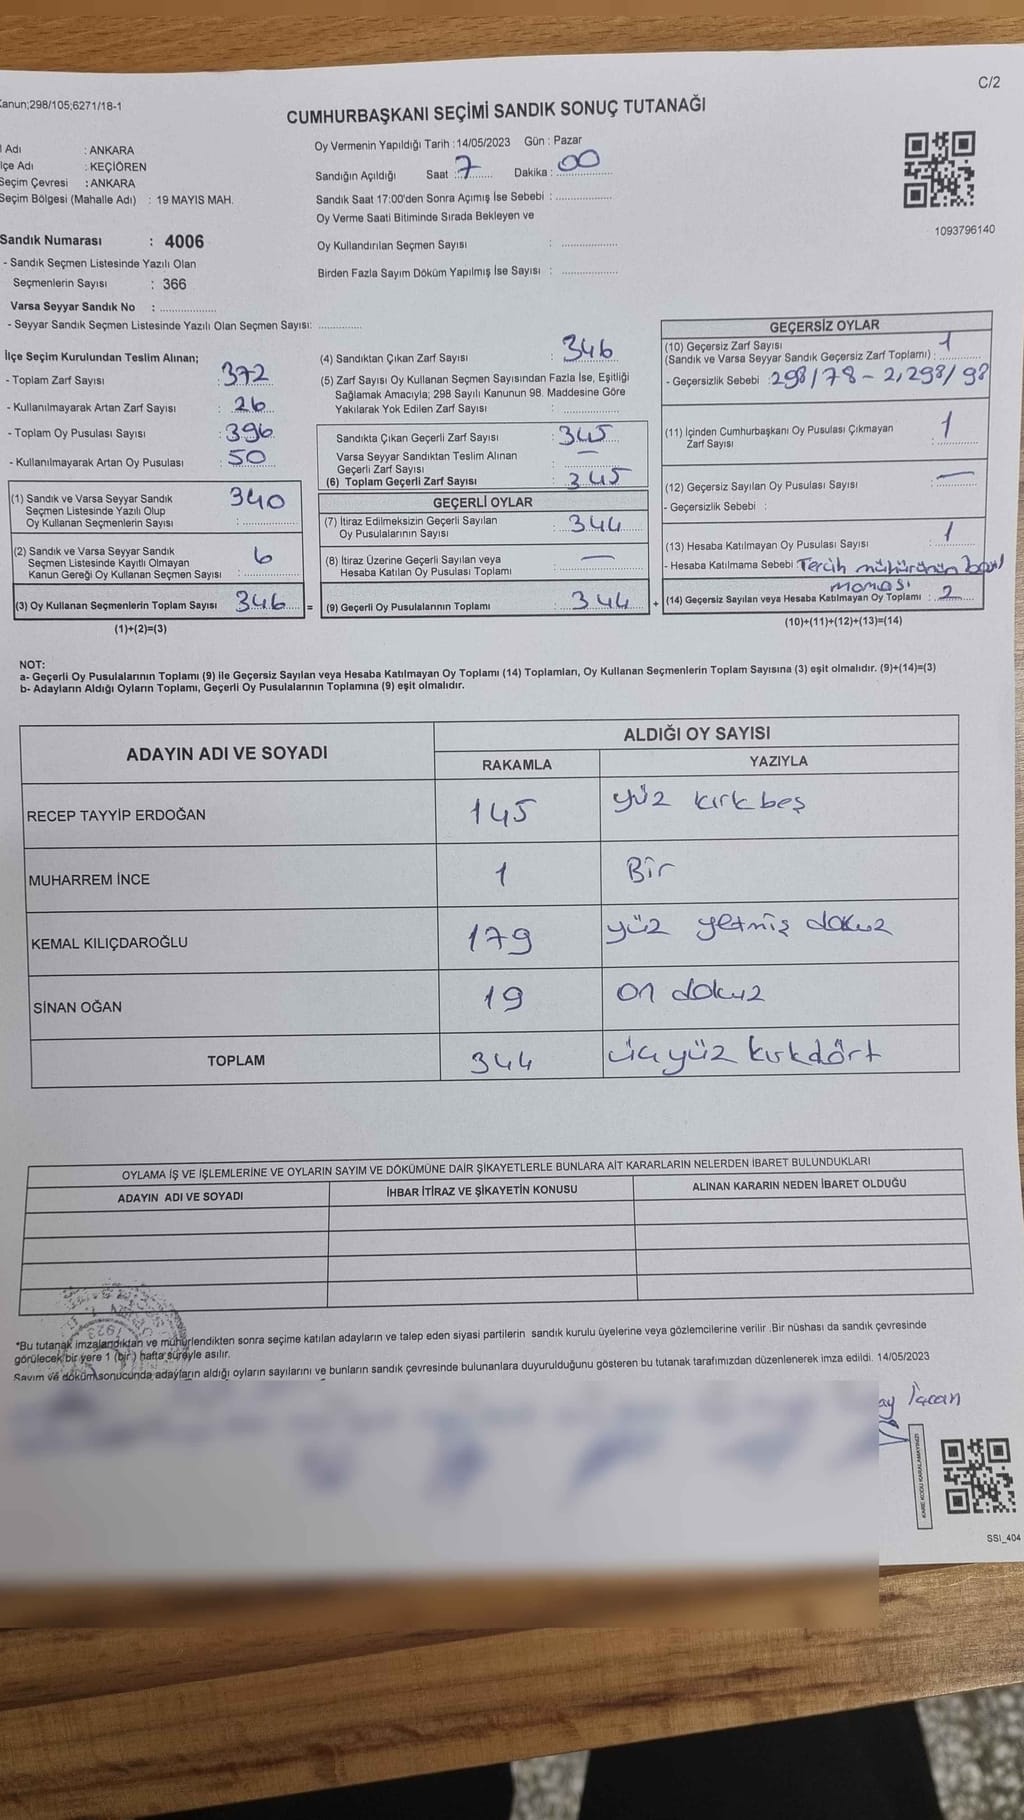 C/2
Kanun;298/105;6271/18-1
CUMHURBAŞKANI SEÇİMİ SANDIK SONUÇ TUTANAĞI
l Adı : ANKARA
lçe Adı : KEÇİÖREN
Seçim Çevresi : ANKARA
Seçim Bölgesi (Mahalle Adı) : 19 MAYIS MAH.
Oy Vermenin Yapıldığı Tarih : 14/05/2023 Gün : Pazar
Sandığın Açıldığı Saat : 7 Dakika : 00
Sandık Saat 17:00'den Sonra Açımış İse Sebebi :
Oy Verme Saati Bitiminde Sırada Bekleyen ve
Oy Kullandırılan Seçmen Sayısı :
Birden Fazla Sayım Döküm Yapılmış İse Sayısı :
1093796140
Sandık Numarası : 4006
- Sandık Seçmen Listesinde Yazılı Olan
Seçmenlerin Sayısı : 366
Varsa Seyyar Sandık No :
- Seyyar Sandık Seçmen Listesinde Yazılı Olan Seçmen Sayısı:
İlçe Seçim Kurulundan Teslim Alınan;
- Toplam Zarf Sayısı : 372
- Kullanılmayarak Artan Zarf Sayısı : 26
- Toplam Oy Pusulası Sayısı : 396
- Kullanılmayarak Artan Oy Pusulası : 50
(1) Sandık ve Varsa Seyyar Sandık
Seçmen Listesinde Yazılı Olup
Oy Kullanan Seçmenlerin Sayısı : 340
(2) Sandık ve Varsa Seyyar Sandık
Seçmen Listesinde Kayıtlı Olmayan
Kanun Gereği Oy Kullanan Seçmen Sayısı : 6
(3) Oy Kullanan Seçmenlerin Toplam Sayısı 346 =
(1)+(2)=(3)
(4) Sandıktan Çıkan Zarf Sayısı : 346
(5) Zarf Sayısı Oy Kullanan Seçmen Sayısından Fazla İse, Eşitliği
Sağlamak Amacıyla; 298 Sayılı Kanunun 98. Maddesine Göre
Yakılarak Yok Edilen Zarf Sayısı :
Sandıkta Çıkan Geçerli Zarf Sayısı : 345
Varsa Seyyar Sandıktan Teslim Alınan
Geçerli Zarf Sayısı : —
(6) Toplam Geçerli Zarf Sayısı : 345
GEÇERLİ OYLAR
(7) İtiraz Edilmeksizin Geçerli Sayılan
Oy Pusulalarının Sayısı : 344
(8) İtiraz Üzerine Geçerli Sayılan veya
Hesaba Katılan Oy Pusulası Toplamı : —
(9) Geçerli Oy Pusulalarının Toplamı : 344 +
GEÇERSİZ OYLAR
(10) Geçersiz Zarf Sayısı
(Sandık ve Varsa Seyyar Sandık Geçersiz Zarf Toplamı) : 1
- Geçersizlik Sebebi : 298/78-2,298/98
(11) İçinden Cumhurbaşkanı Oy Pusulası Çıkmayan
Zarf Sayısı : 1
(12) Geçersiz Sayılan Oy Pusulası Sayısı : —
- Geçersizlik Sebebi :
(13) Hesaba Katılmayan Oy Pusulası Sayısı : 1
- Hesaba Katılmama Sebebi Tercih mühürünün basıl
maması
(14) Geçersiz Sayılan veya Hesaba Katılmayan Oy Toplamı : 2
(10)+(11)+(12)+(13)=(14)
NOT:
a- Geçerli Oy Pusulalarının Toplamı (9) ile Geçersiz Sayılan veya Hesaba Katılmayan Oy Toplamı (14) Toplamları, Oy Kullanan Seçmenlerin Toplam Sayısına (3) eşit olmalıdır. (9)+(14)=(3)
b- Adayların Aldığı Oyların Toplamı, Geçerli Oy Pusulalarının Toplamına (9) eşit olmalıdır.
ADAYIN ADI VE SOYADI ALDIĞI OY SAYISI
RAKAMLA YAZIYLA
RECEP TAYYİP ERDOĞAN 145 yüz kırk beş
MUHARREM İNCE 1 Bir
KEMAL KILIÇDAROĞLU 179 yüz yetmiş dokuz
SİNAN OĞAN 19 on dokuz
TOPLAM 344 üçyüz kırkdört
OYLAMA İŞ VE İŞLEMLERİNE VE OYLARIN SAYIM VE DÖKÜMÜNE DAİR ŞİKAYETLERLE BUNLARA AİT KARARLARIN NELERDEN İBARET BULUNDUKLARI
ADAYIN ADI VE SOYADI İHBAR İTİRAZ VE ŞİKAYETİN KONUSU ALINAN KARARIN NEDEN İBARET OLDUĞU
*Bu tutanak imzalandıktan ve mühürlendikten sonra seçime katılan adayların ve talep eden siyasi partilerin sandık kurulu üyelerine veya gözlemcilerine verilir .Bir nüshası da sandık çevresinde
görülecek bir yere 1 (bir) hafta süreyle asılır.
Sayım ve döküm sonucunda adayların aldığı oyların sayılarını ve bunların sandık çevresinde bulunanlara duyurulduğunu gösteren bu tutanak tarafımızdan düzenlenerek imza edildi. 14/05/2023
KARE KODU KARALAMAYINIZ!
SSI_404